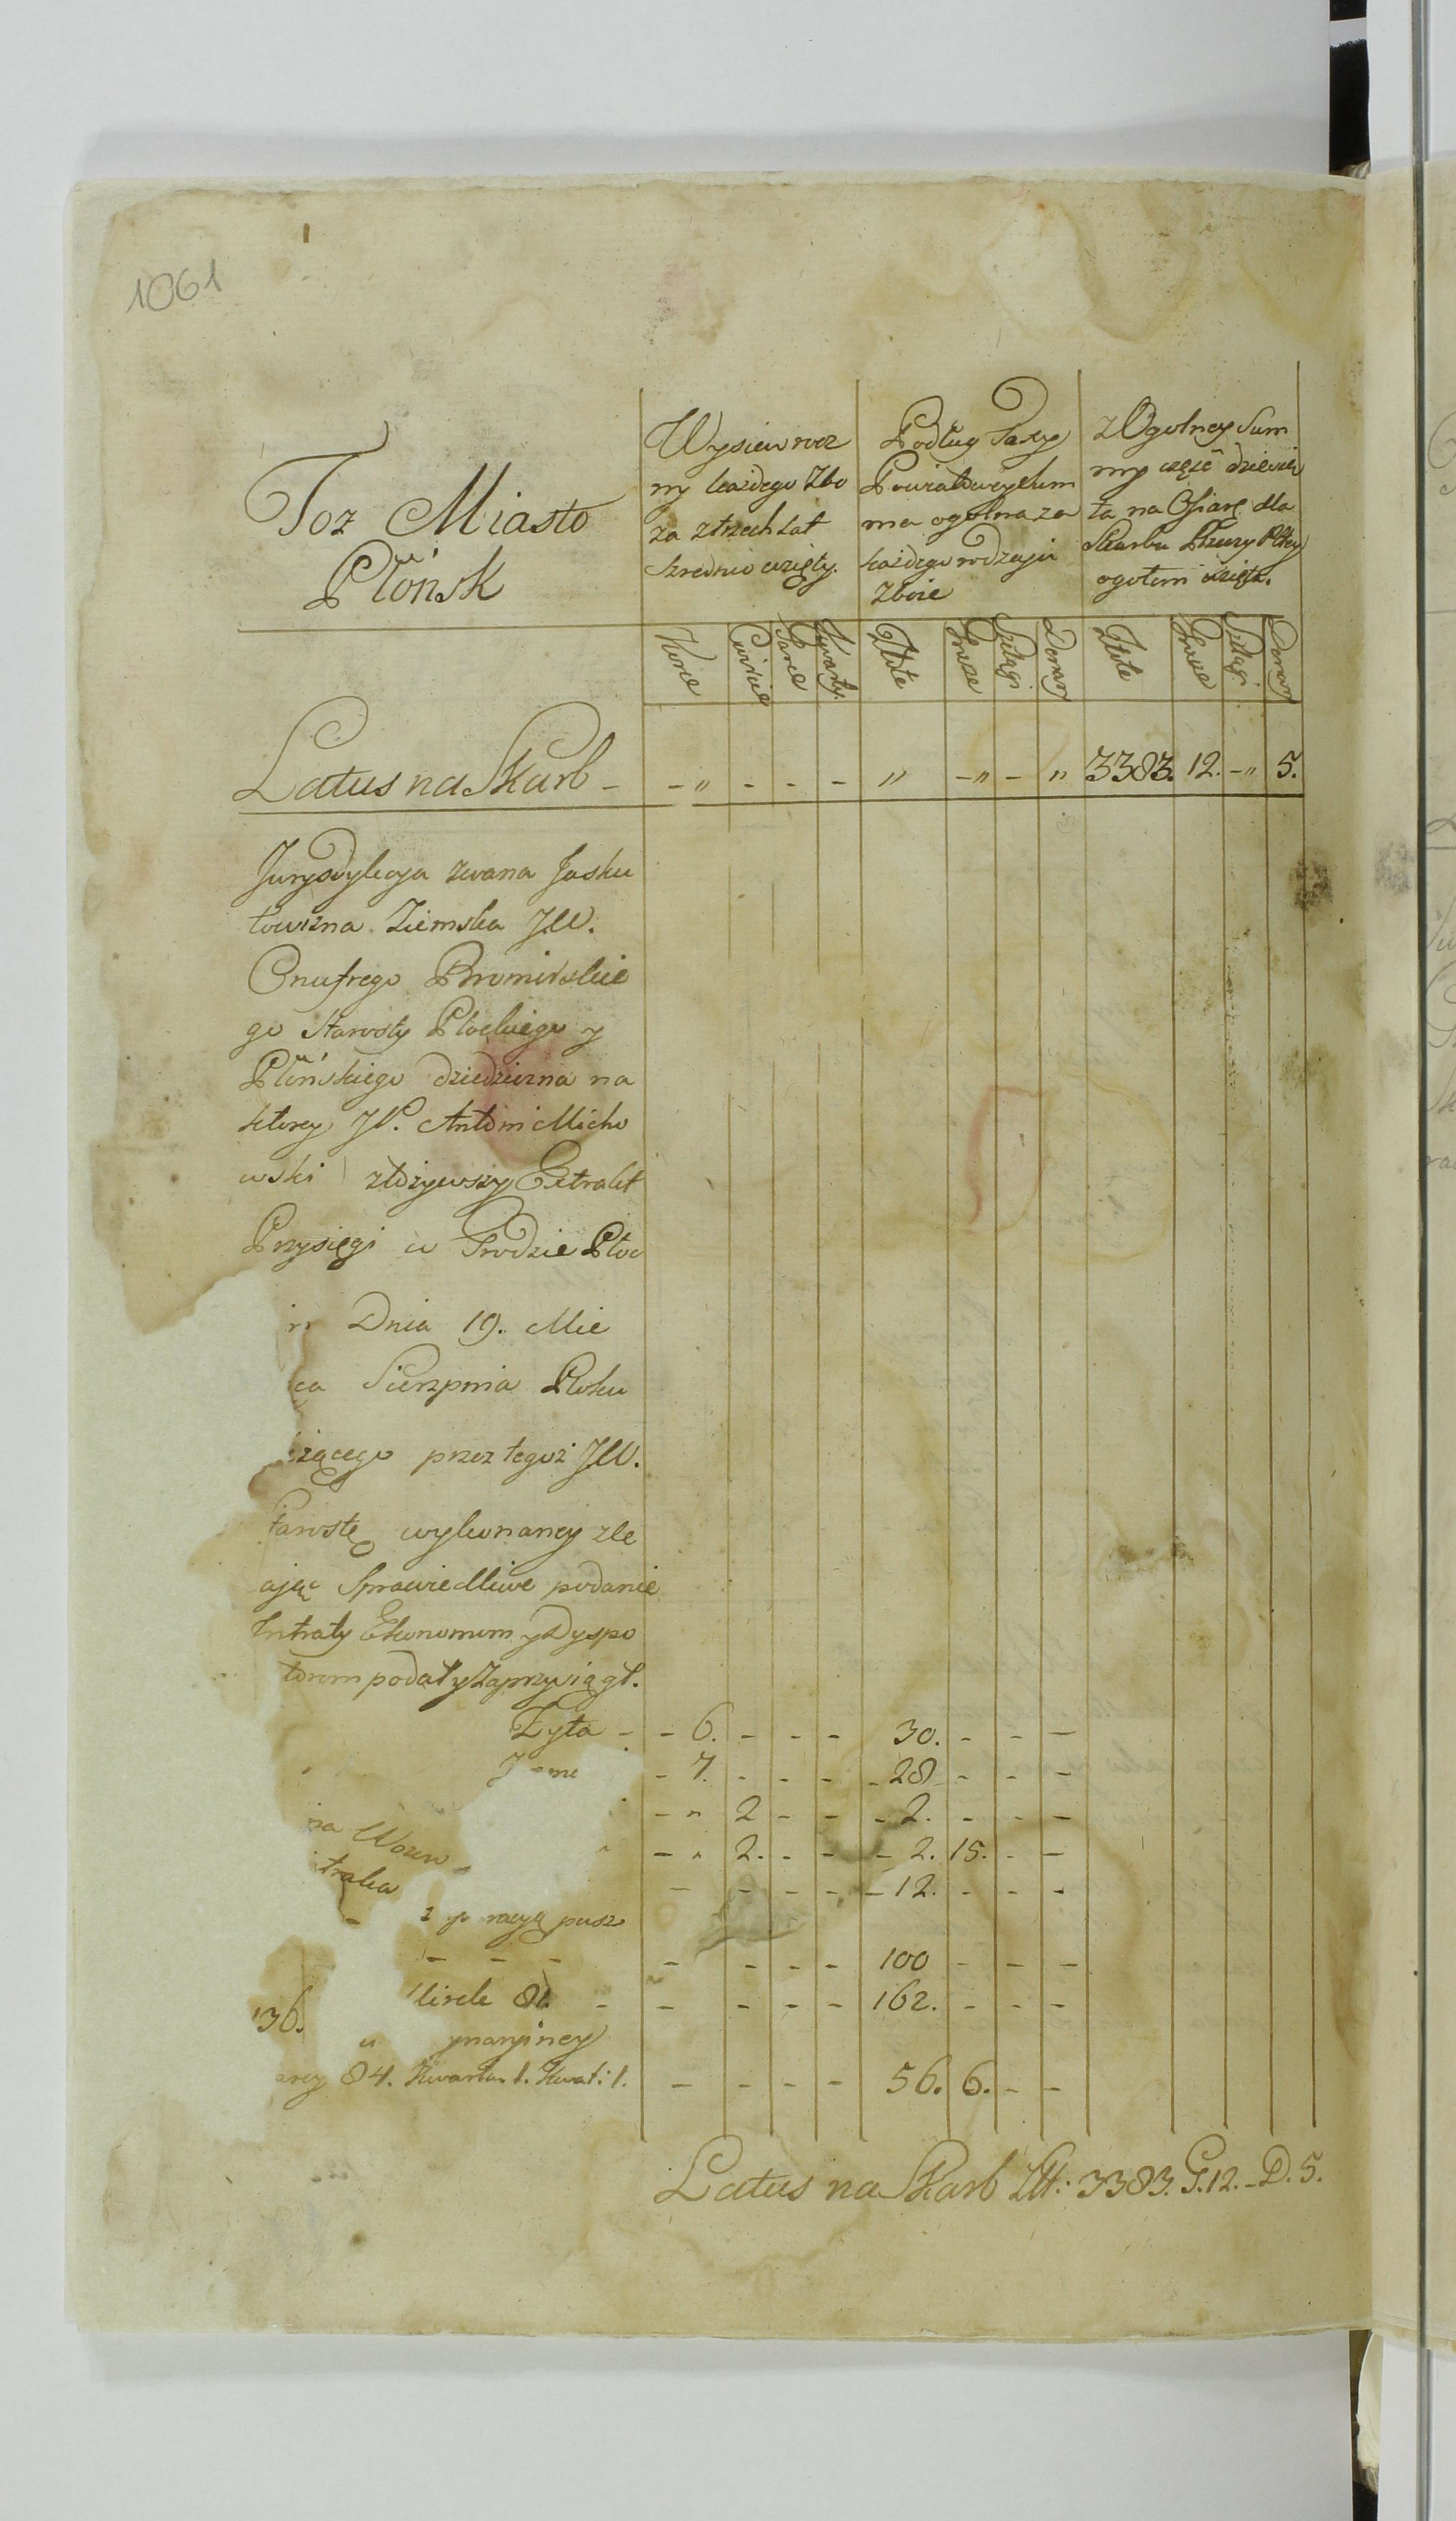 1061
Toz Miasto
Płońsk
Wysiew rocz
ny każdego Zbo
za ztrzech Lat
Szrednio wzięty.
Podług Taxy
Powiatowey Sum
ma ogolna za
każdego rodzaju
Zboże
z Ogolney Sum
my część dziesią
ta na Ofiarę dla
Skarbu Rzeczy Pltey
ogołem wzięta.
Korce Cwircie Garce Kwarty. Złote Grosze Szelągi Denary Złote Grosze Szelągi Denary
Latus na Skarb - - „ - - - „ - „ - „ 3383. 12. - „ 5.
Jurysdykcya zwana Jasku
łowizna Ziemska JW.
Onufrego Bromirskie
go Starosty Płockiego y
Płońskiego dziedziczna na
ktorey JP. Antoni Micho
wski złożywszy Extrakt
Przysięgi w Grodzie Płoc
Dnia 19. Mie
ca Sierpnia Roku
żącego przez tegoż JW.
tarostę wykonaney zle
ając Sprawiedliwe podanie
Intraty Ekonomom y Dyspo
torom podał y Zaprzysiągł.
Zyta - - 6. - - - 30. - - -
- 7. - - - - 28 - - -
- „ 2 - - - 2. - - -
- „ 2. - - - 2. 15. - -
- - - - - 12. - - -
racyą pusz
- - - - - - - 100 - - -
136. 81. - - - - - 162. - - -
ynaryiney
84. Kwarta. 1. Kwat: 1. - - - - 56. 6. - -
Latus na Skarb Złł: 3383. G. 12. - D. 5.